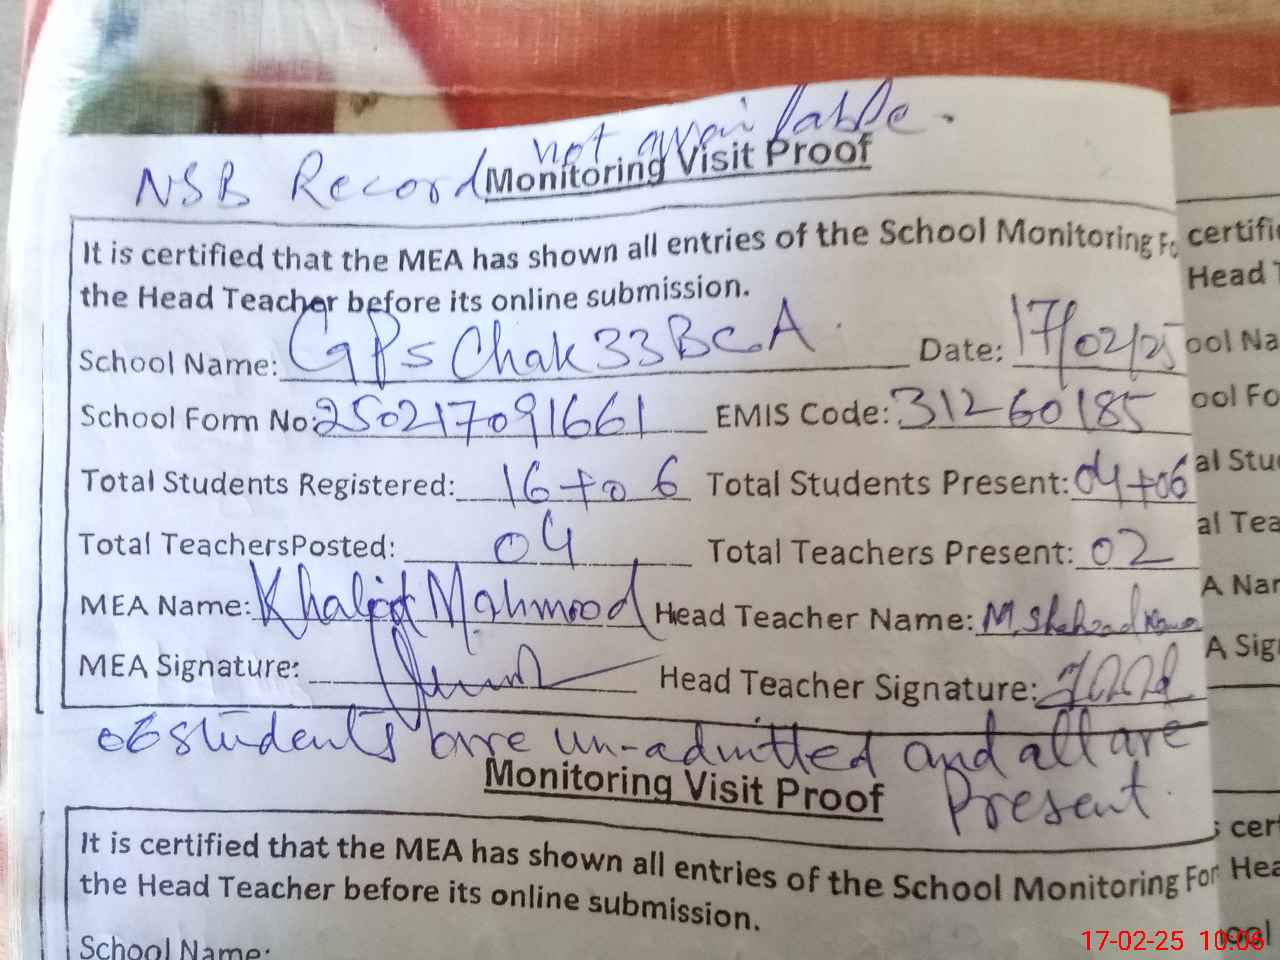 not available.
NSB Record Monitoring Visit Proof
It is certified that the MEA has shown all entries of the School Monitoring Fo
the Head Teacher before its online submission.
School Name: GPS Chak 33 BC A Date: 17/02/25
School Form No: 250217091661 EMIS Code: 31260185
Total Students Registered: 16+06 Total Students Present: 04+06
Total TeachersPosted: 04 Total Teachers Present: 02
MEA Name: Khalid Mahmood Head Teacher Name: M. Shahzad
MEA Signature: Head Teacher Signature:
06 students are un-admitted and all are
Present.
Monitoring Visit Proof
It is certified that the MEA has shown all entries of the School Monitoring For
the Head Teacher before its online submission.
School Name:
certifi
Head T
ool Na
ool Fo
al Stu
al Tea
A Nar
A Sig
cer
Hea
ool
17-02-25 10:06